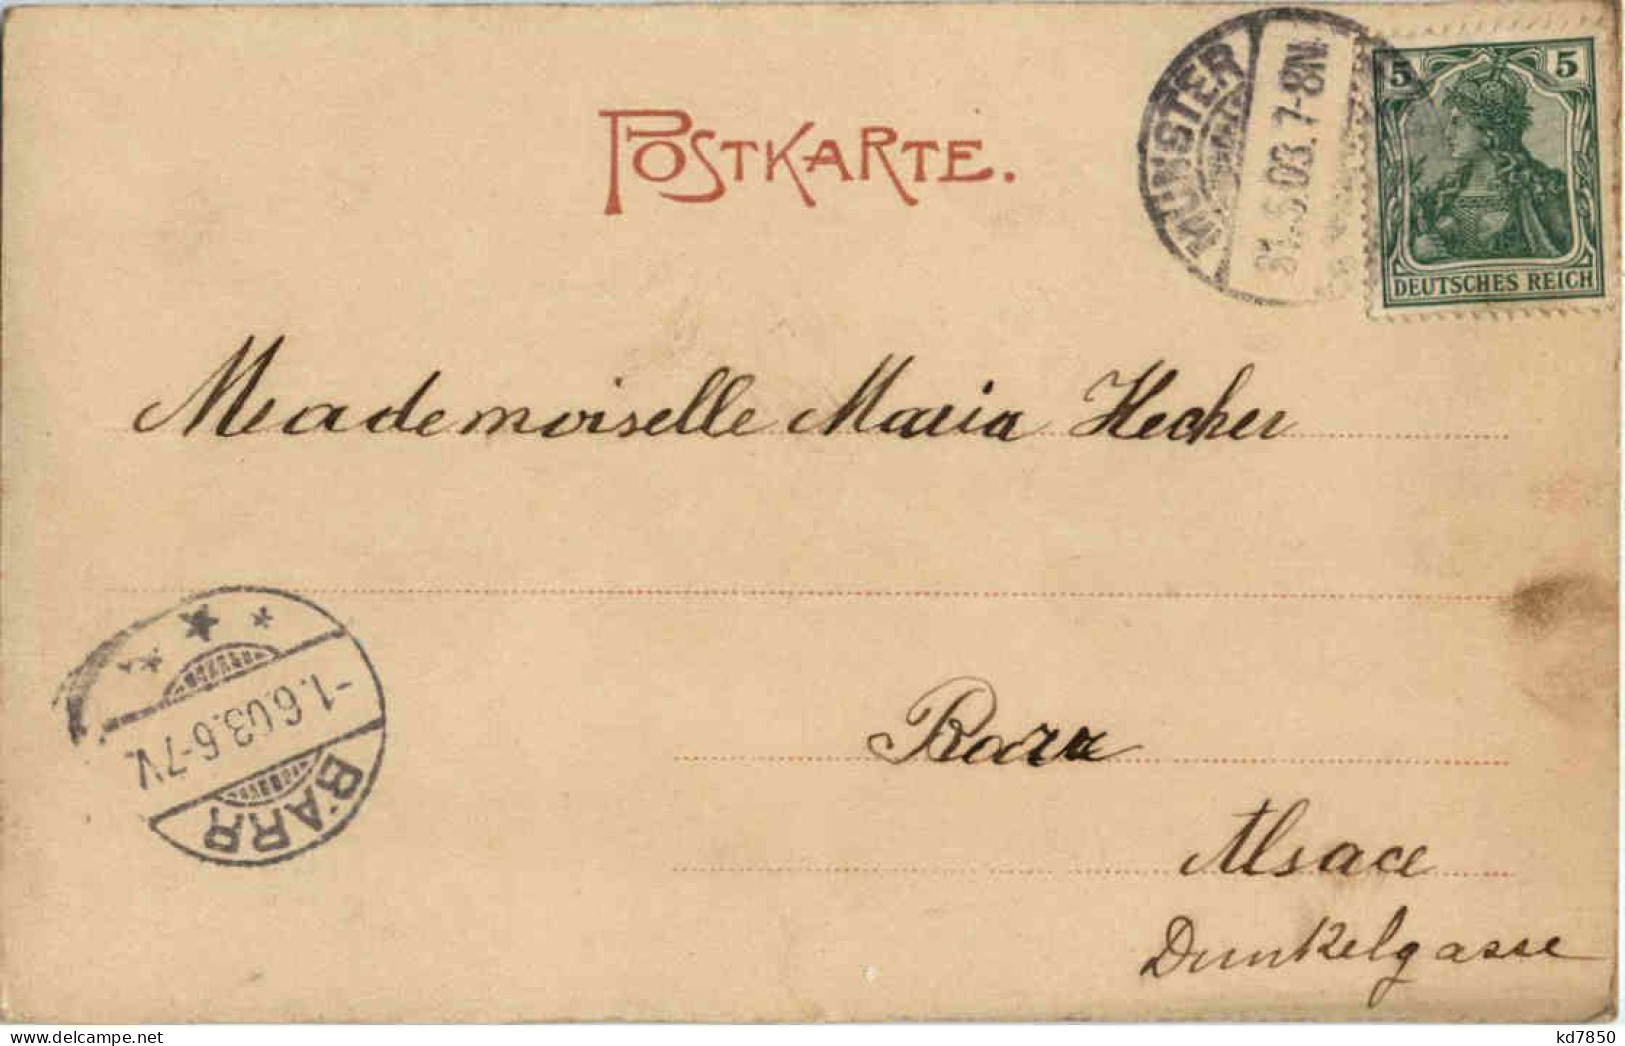 POSTKARTE.
MÜNSTER
31.5.03. 7-8N.
5 5
DEUTSCHES REICH
Meademoiselle Maria Hecker
-1.6.03.6-7V.
BARR
Barr
Alsace
Dunkelgasse
kd7850